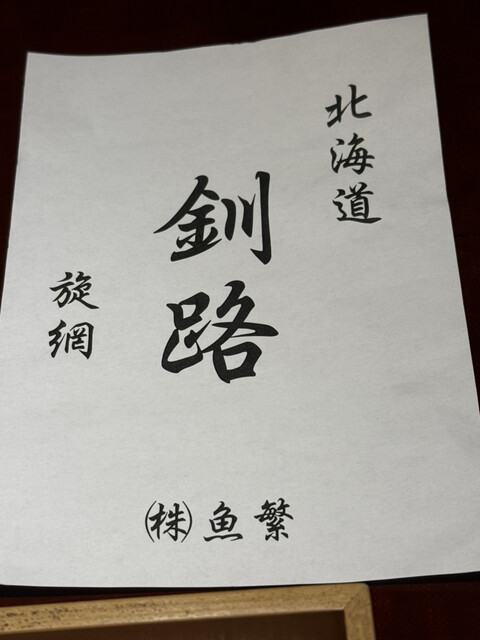 北海道
釧路
旋網
㈱魚繁